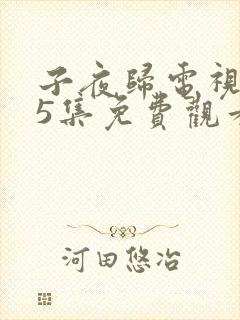 子夜歸電視
5集免費觀
河田悠冶